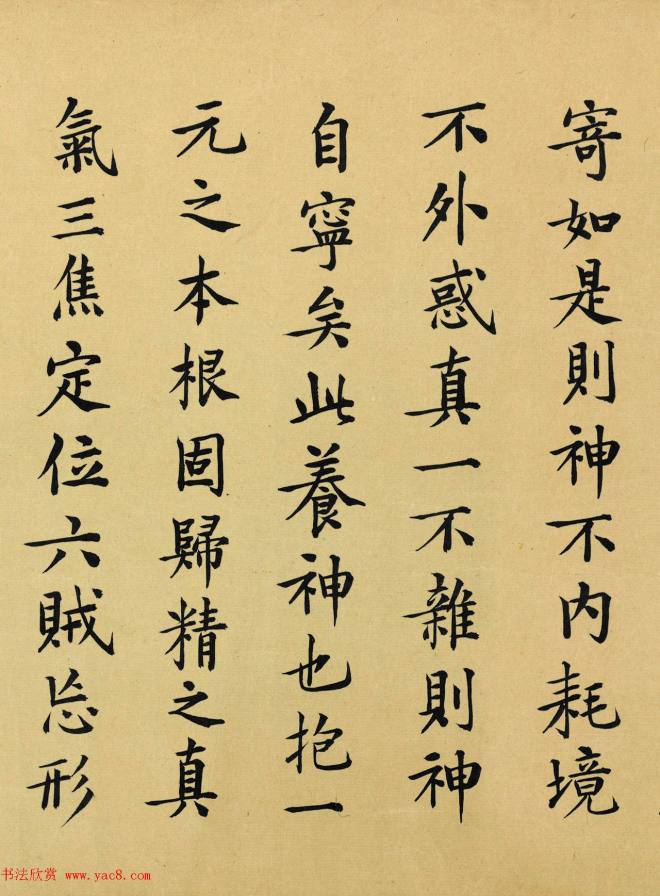 寄如是則神不内耗境
不外惑真一不雜則神
自寧矣此養神也抱一
元之本根固歸精之真
氣三焦定位六賊忘形
书法欣赏 www.yac8.com